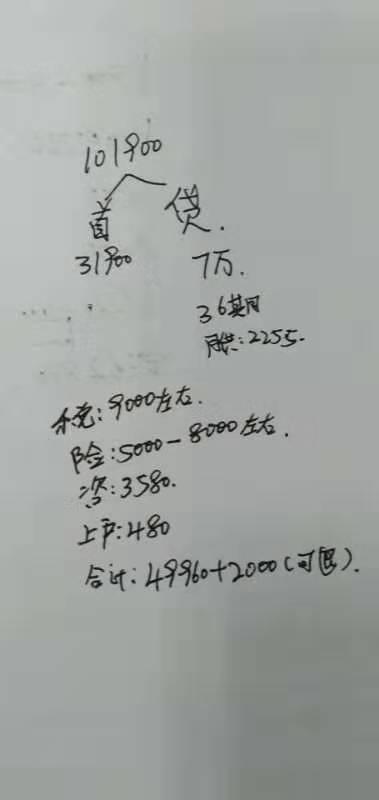 101900
首 贷.
31900 7万.
36期
月供:2255.
税:9000左右.
险:5000-8000左右.
咨:3580.
上户:480
合计:49960+2000(可退).